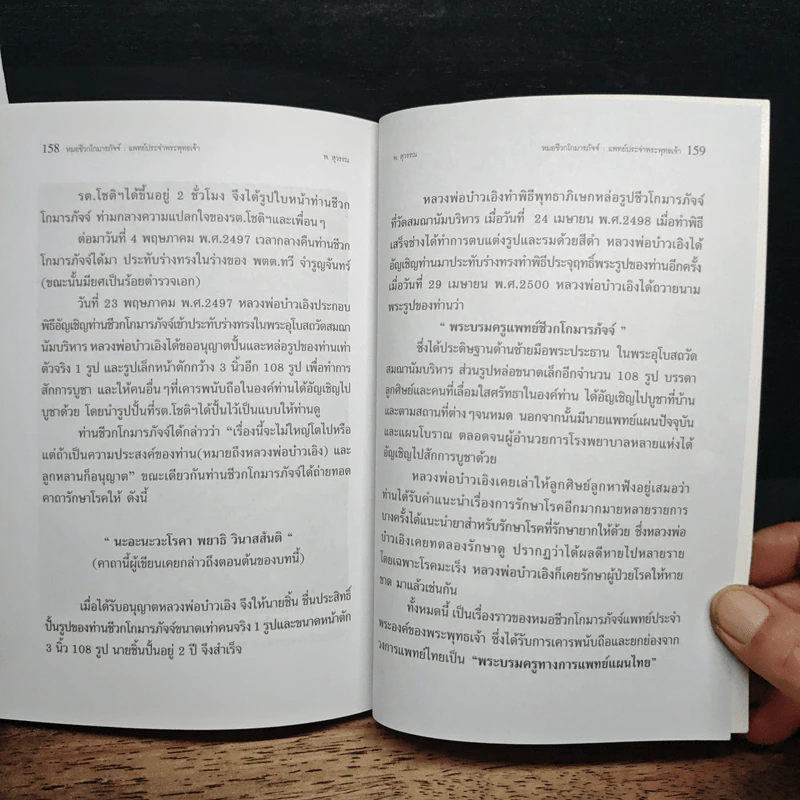 158 หมอชีวกโกมารภัจจ์ : แพทย์ประจำพระพุทธเจ้า
พ. สุวรรณ
รต.โชติฯได้ขึ้นอยู่ 2 ชั่วโมง จึงได้รูปใบหน้าท่านชีวก
โกมารภัจจ์ ท่ามกลางความแปลกใจของรต.โชติฯและเพื่อนๆ
ต่อมาวันที่ 4 พฤษภาคม พ.ศ.2497 เวลากลางคืนท่านชีวก
โกมารภัจจ์ได้มา ประทับร่างทรงในร่างของ พตต.ทวี จำรูญจันทร์
(ขณะนั้นมียศเป็นร้อยตำรวจเอก)
วันที่ 23 พฤษภาคม พ.ศ.2497 หลวงพ่อบ๋าวเอิงประกอบ
พิธีอัญเชิญท่านชีวกโกมารภัจจ์เข้าประทับร่างทรงในพระอุโบสถวัดสมณา
นัมบริหาร หลวงพ่อบ๋าวเอิงได้ขออนุญาตปั้นและหล่อรูปของท่านเท่า
ตัวจริง 1 รูป และรูปเล็กหน้าตักกว้าง 3 นิ้วอีก 108 รูป เพื่อทำการ
สักการบูชา และให้คนอื่นๆที่เคารพนับถือในองค์ท่านได้อัญเชิญไป
บูชาด้วย โดยนำรูปปั้นที่รต.โชติฯได้ปั้นไว้เป็นแบบให้ท่านดู
ท่านชีวกโกมารภัจจ์ได้กล่าวว่า “เรื่องนี้จะไม่ใหญ่โตไปหรือ
แต่ถ้าเป็นความประสงค์ของท่าน(หมายถึงหลวงพ่อบ๋าวเอิง) และ
ลูกหลานก็อนุญาต” ขณะเดียวกันท่านชีวกโกมารภัจจ์ได้ถ่ายทอด
คาถารักษาโรคให้ ดังนี้
“ นะอะนะวะโรคา พยาธิ วินาสสันติ “
(คาถานี้ผู้เขียนเคยกล่าวถึงตอนต้นของบทนี้)
เมื่อได้รับอนุญาตหลวงพ่อบ๋าวเอิง จึงให้นายชิ้น ชื่นประสิทธิ์
ปั้นรูปของท่านชีวกโกมารภัจจ์ขนาดเท่าคนจริง 1 รูปและขนาดหน้าตัก
3 นิ้ว 108 รูป นายชิ้นปั้นอยู่ 2 ปี จึงสำเร็จ
หมอชีวกโกมารภัจจ์ : แพทย์ประจำพระพุทธเจ้า 159
พ. สุวรรณ
หลวงพ่อบ๋าวเอิงทำพิธีพุทธาภิเษกหล่อรูปชีวโกมารภัจจ์
ที่วัดสมณานัมบริหาร เมื่อวันที่ 24 เมษายน พ.ศ.2498 เมื่อทำพิธี
เสร็จช่างได้ทำการตบแต่งรูปและรมด้วยสีดำ หลวงพ่อบ๋าวเอิงได้
อัญเชิญท่านมาประทับร่างทรงทำพิธีประจุฤทธิ์พระรูปของท่านอีกครั้ง
เมื่อวันที่ 29 เมษายน พ.ศ.2500 หลวงพ่อบ๋าวเอิงได้ถวายนาม
พระรูปของท่านว่า
“ พระบรมครูแพทย์ชีวกโกมารภัจจ์ ”
ซึ่งได้ประดิษฐานด้านซ้ายมือพระประธาน ในพระอุโบสถวัด
สมณานัมบริหาร ส่วนรูปหล่อขนาดเล็กอีกจำนวน 108 รูป บรรดา
ลูกศิษย์และคนที่เลื่อมใสศรัทธาในองค์ท่าน ได้อัญเชิญไปบูชาที่บ้าน
และตามสถานที่ต่างๆจนหมด นอกจากนั้นมีนายแพทย์แผนปัจจุบัน
และแผนโบราณ ตลอดจนผู้อำนวยการโรงพยาบาลหลายแห่งได้
อัญเชิญไปสักการบูชาด้วย
หลวงพ่อบ๋าวเอิงเคยเล่าให้ลูกศิษย์ลูกหาฟังอยู่เสมอว่า
ท่านได้รับคำแนะนำเรื่องการรักษาโรคอีกมากมายหลายรายการ
บางครั้งได้แนะนำยาสำหรับรักษาโรคที่รักษายากให้ด้วย ซึ่งหลวงพ่อ
บ๋าวเอิงเคยทดลองรักษาดู ปรากฏว่าได้ผลดีหายไปหลายราย
โดยเฉพาะโรคมะเร็ง หลวงพ่อบ๋าวเอิงก็เคยรักษาผู้ป่วยโรคให้หาย
ขาด มาแล้วเช่นกัน
ทั้งหมดนี้ เป็นเรื่องราวของหมอชีวกโกมารภัจจ์แพทย์ประจำ
พระองค์ของพระพุทธเจ้า ซึ่งได้รับการเคารพนับถือและยกย่องจาก
วงการแพทย์ไทยเป็น “พระบรมครูทางการแพทย์แผนไทย”